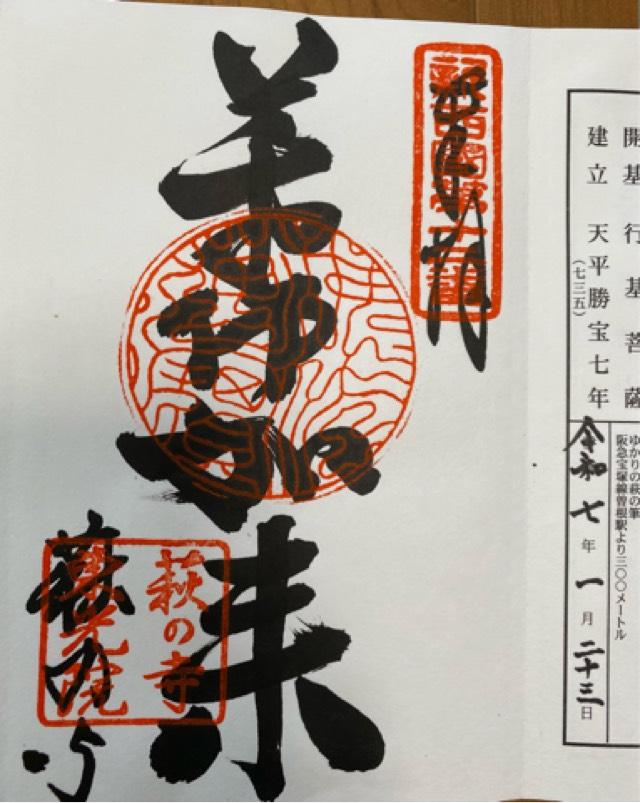 開基 行基菩薩
建立 天平勝宝七年
(七三五)
ゆかりの萩の筆
阪急宝塚線曽根駅より三〇〇メートル
令和七年一月二十三日
薬師如来
萩の寺
萩の寺
東光院